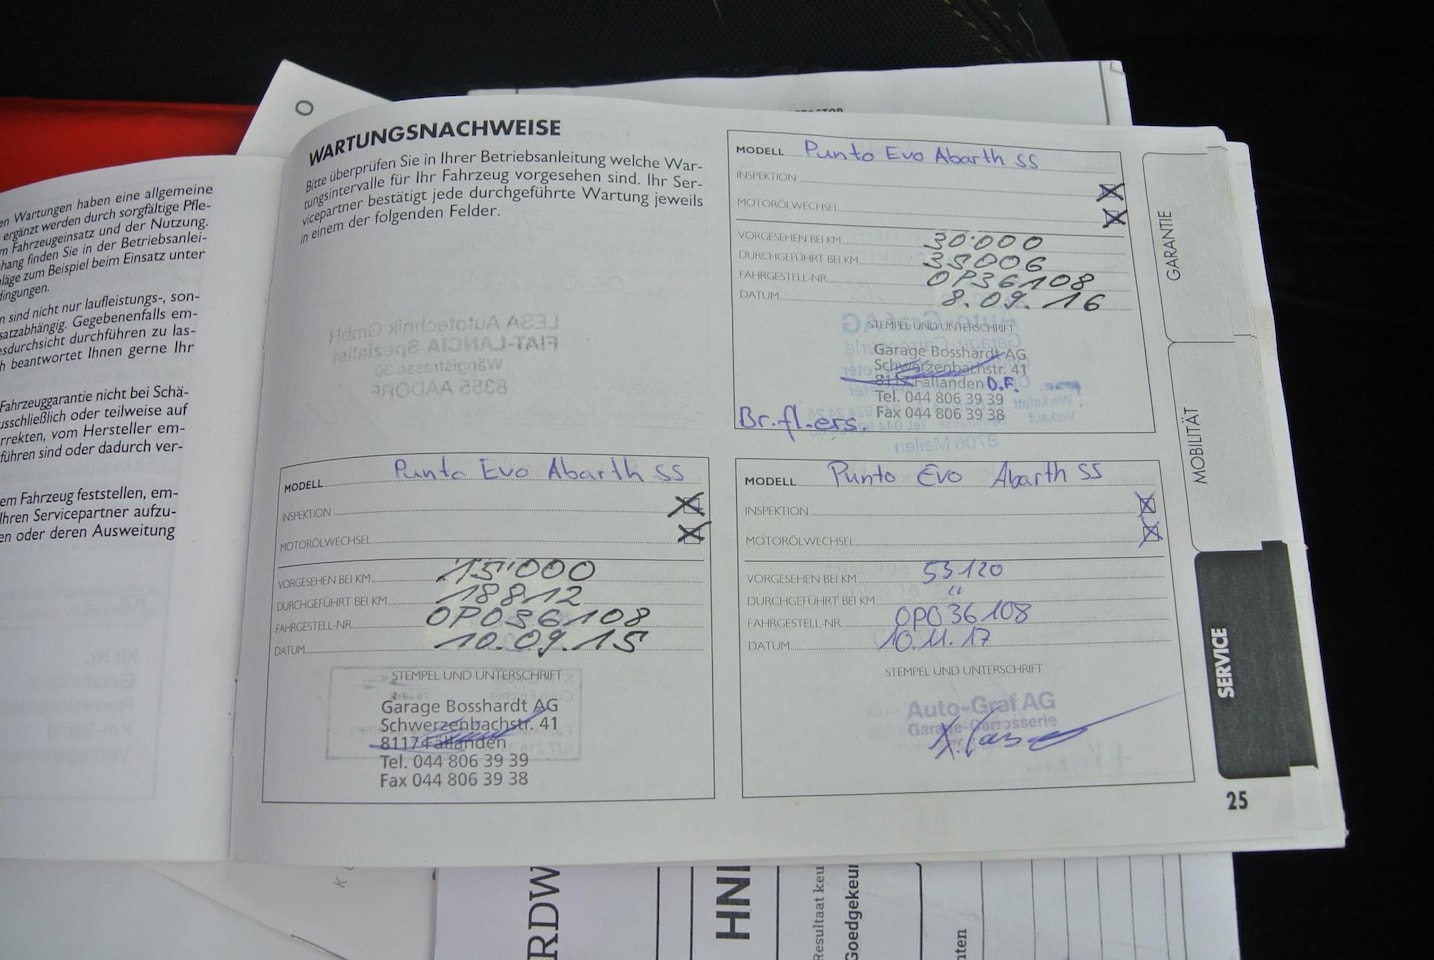 en Wartungen haben eine allgemeine
ergänzt werden durch sorgfältige Pfle-
m Fahrzeugeinsatz und der Nutzung.
hang finden Sie in der Betriebsanlei-
läge zum Beispiel beim Einsatz unter
dingungen.
n sind nicht nur laufleistungs-, son-
satzabhängig. Gegebenenfalls em-
esdurchsicht durchführen zu las-
h beantwortet Ihnen gerne Ihr
Fahrzeuggarantie nicht bei Schä-
usschließlich oder teilweise auf
rrekten, vom Hersteller em-
führen sind oder dadurch ver-
em Fahrzeug feststellen, em-
Ihren Servicepartner aufzu-
en oder deren Ausweitung
WARTUNGSNACHWEISE
Bitte überprüfen Sie in Ihrer Betriebsanleitung welche War-
tungsintervalle für Ihr Fahrzeug vorgesehen sind. Ihr Ser-
vicepartner bestätigt jede durchgeführte Wartung jeweils
in einem der folgenden Felder.
MODELL Punto Evo Abarth SS
INSPEKTION
MOTORÖLWECHSEL
VORGESEHEN BEI KM 30'000
DURCHGEFÜHRT BEI KM 35006
FAHRGESTELL-NR. OP36108
DATUM 8.09.16
STEMPEL UND UNTERSCHRIFT
Garage Bosshardt AG
Schwerzenbachstr. 41
8117 Fällanden D.F.
Tel. 044 806 39 39
Fax 044 806 39 38
Br.fl.ers.
MODELL Punto Evo Abarth SS
INSPEKTION
MOTORÖLWECHSEL
VORGESEHEN BEI KM 15'000
DURCHGEFÜHRT BEI KM 18812
FAHRGESTELL-NR. OP036108
DATUM 10.09.15
STEMPEL UND UNTERSCHRIFT
Garage Bosshardt AG
Schwerzenbachstr. 41
8117 Fällanden
Tel. 044 806 39 39
Fax 044 806 39 38
MODELL Punto Evo Abarth SS
INSPEKTION
MOTORÖLWECHSEL
VORGESEHEN BEI KM 53120
DURCHGEFÜHRT BEI KM "
FAHRGESTELL-NR. OPO36108
DATUM 10.11.17
STEMPEL UND UNTERSCHRIFT
Auto-Graf AG
Garage-Carrosserie
GARANTIE
MOBILITÄT
SERVICE
25
RDW
HNI
Resultaat keu
Goedgekeur
nten